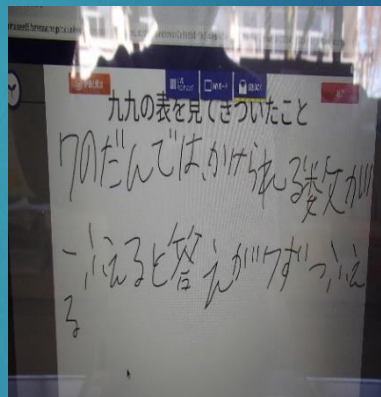 九九の表を見てきづいたこと
7のだんでは、かけられる数が
一ふえると答えが7ずつふえ
る